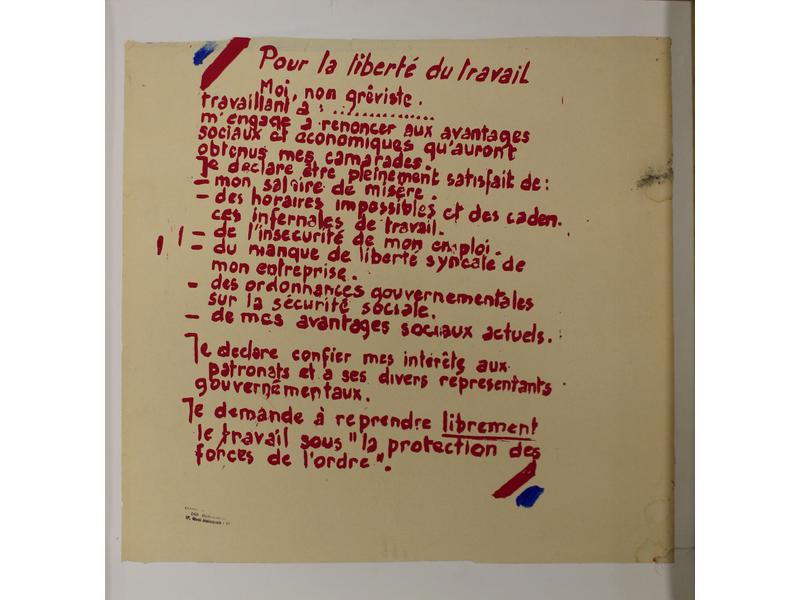 Pour la liberté du travail
Moi, non grêviste.
travaillant à : ..............
m'engage à renoncer aux avantages
sociaux et économiques qu'auront
obtenus mes camarades.
Je déclare être pleinement satisfait de :
- mon salaire de misère.
- des horaires impossibles et des caden.
ces infernales de travail.
- de l'insécurité de mon emploi.
- du manque de liberté syncale de
mon entreprise.
- des ordonnances gouvernementales
sur la sécurité sociale.
- de mes avantages sociaux actuels.
Je déclare confier mes intérêts aux
patronats et à ses divers représentants
gouvernémentaux.
Je demande à reprendre librement
le travail sous "la protection des
forces de l'ordre".